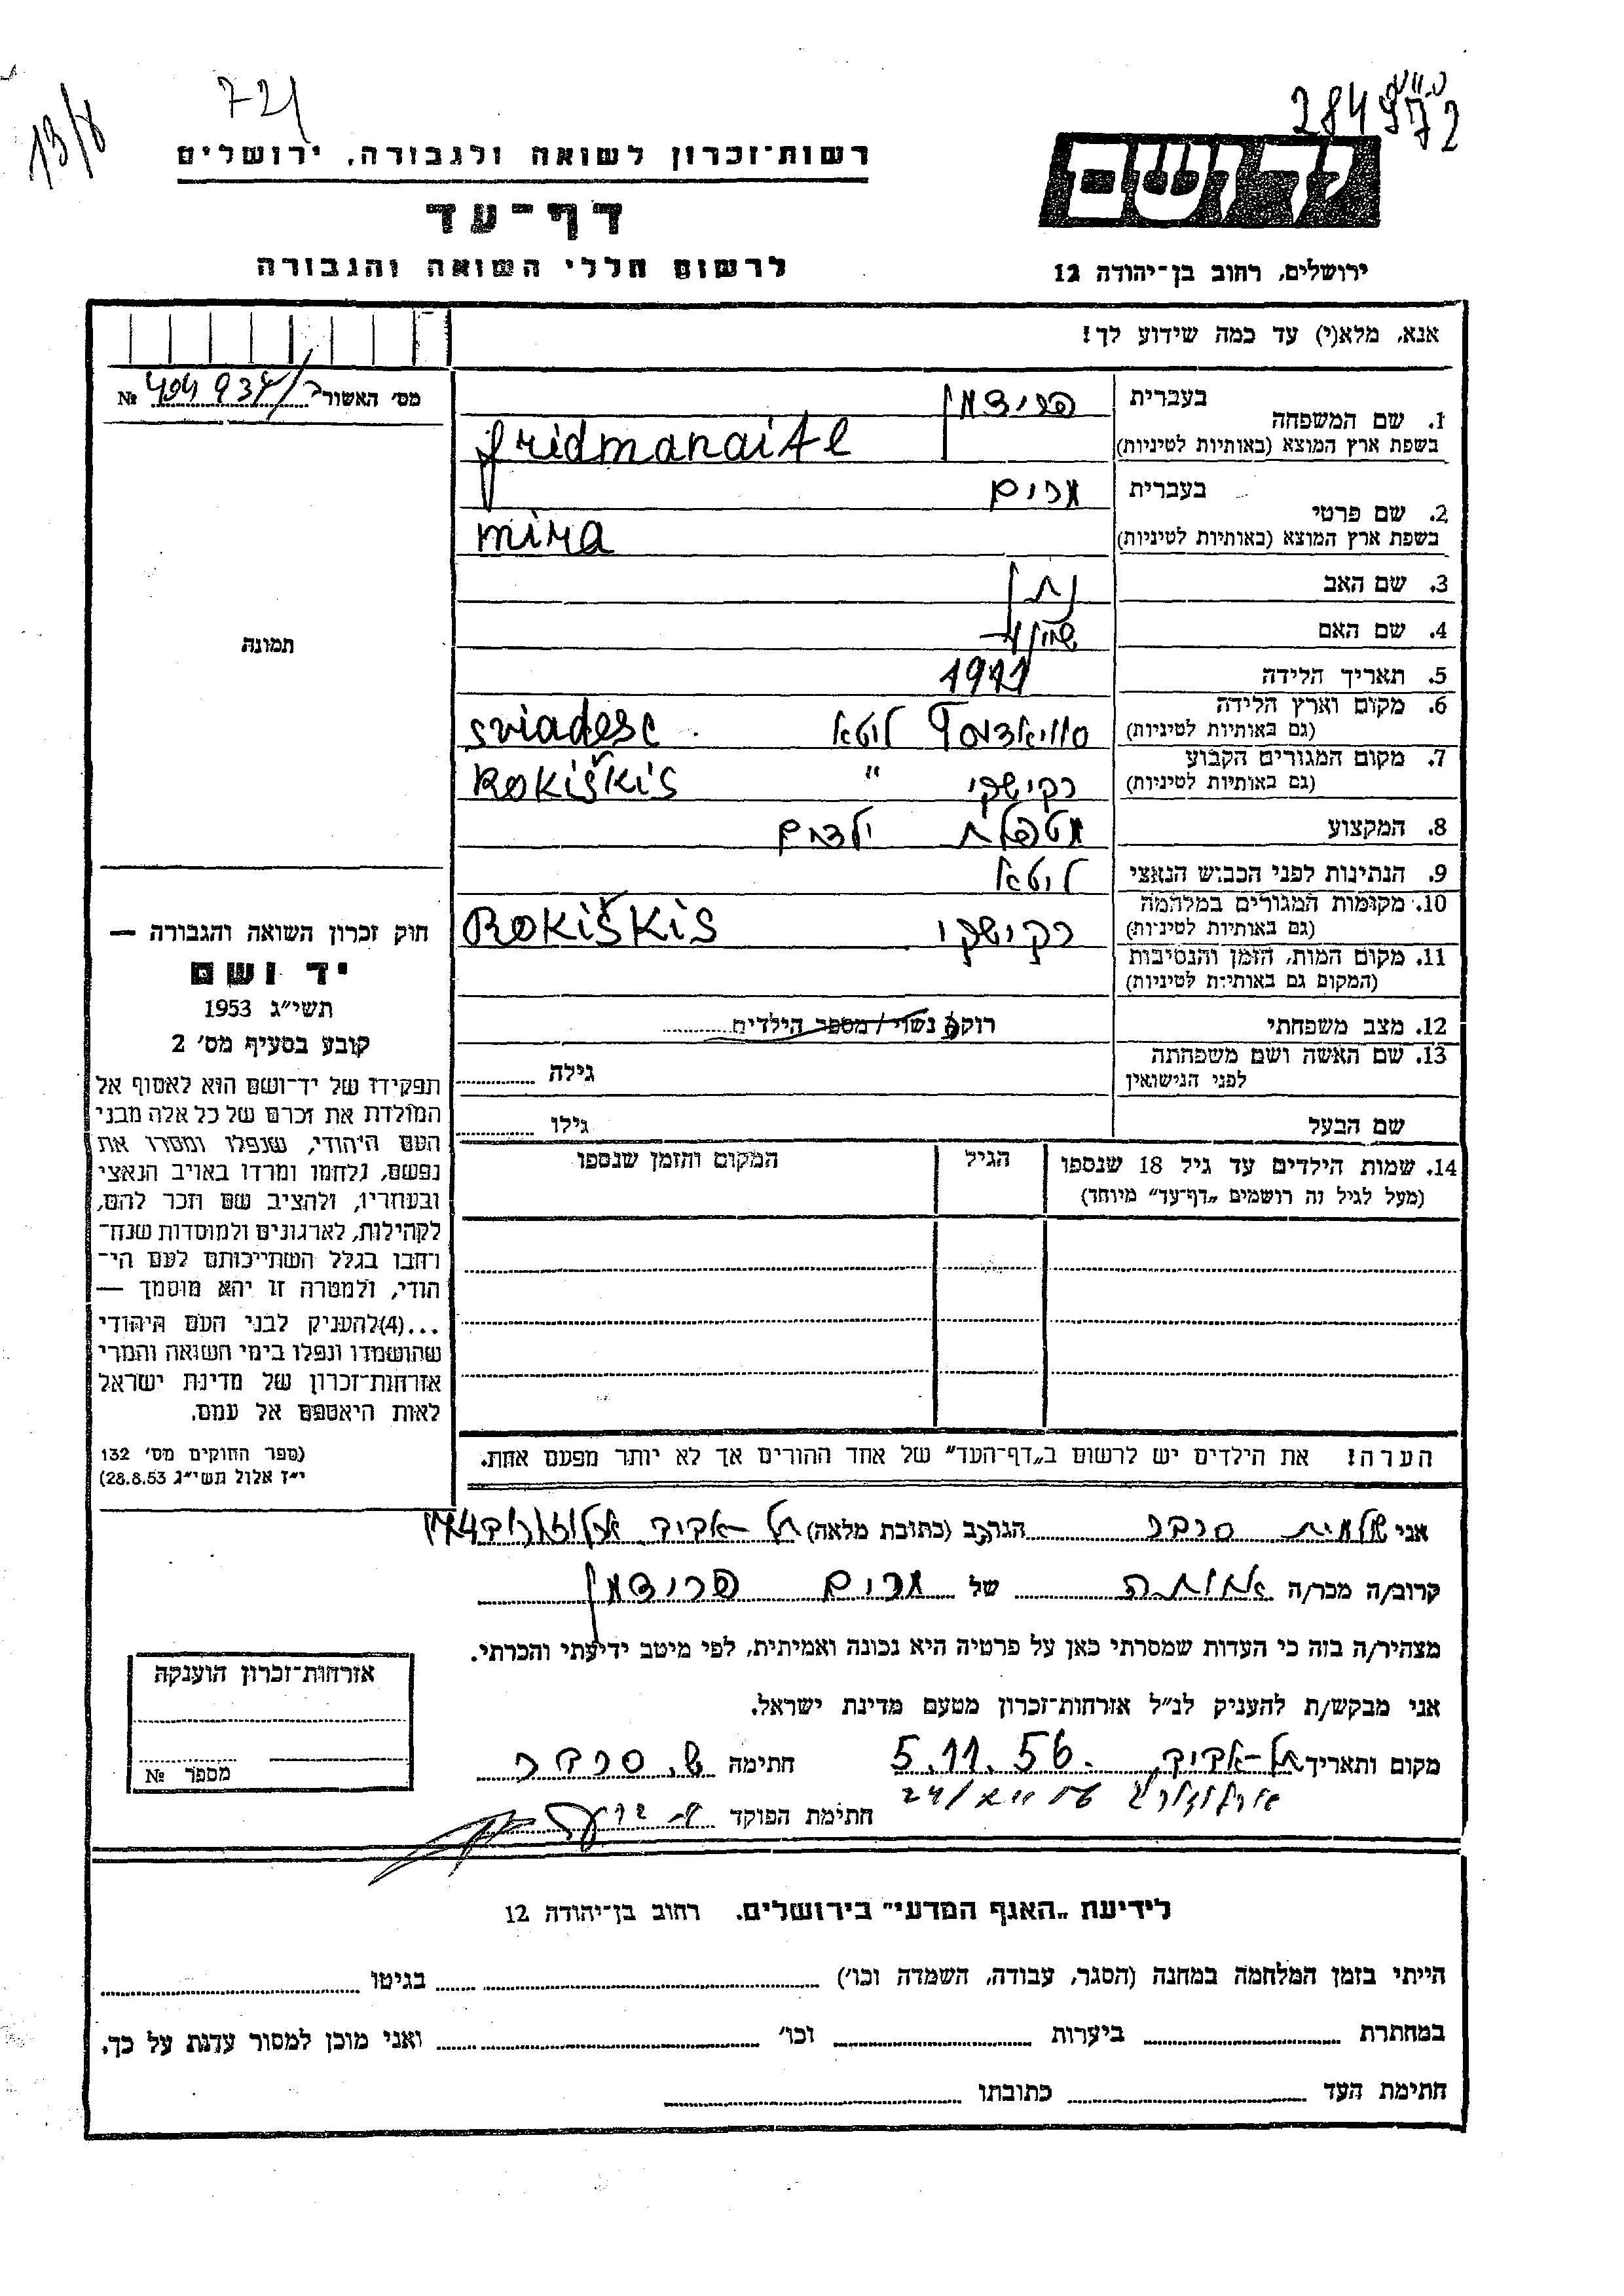 13/8
721
284972
רשות־זכרון לשואה ולגבורה, ירושלים
דף־עד
לרשום חללי השואה והגבורה
יד ושם
ירושלים, רחוב בן־יהודה 12
אנא, מלא(י) עד כמה שידוע לך!
מס' האשור № 
1. שם המשפחה
בעברית פרידמן
בשפת ארץ המוצא (באותיות לטיניות) fridmanaite
2. שם פרטי
בעברית מרים
בשפת ארץ המוצא (באותיות לטיניות) mira
3. שם האב נתן
4. שם האם
5. תאריך הלידה 1911
6. מקום וארץ הלידה
(גם באותיות לטיניות) לוטא sviadesc
7. מקום המגורים הקבוע
(גם באותיות לטיניות) רקישקי " Rokiškis
8. המקצוע מטפלת ילדים
9. הנתינות לפני הכבוש הנאצי לוטא
10. מקומות המגורים במלחמה
(גם באותיות לטיניות) רקישקי Rokiškis
11. מקום המות, הזמן והנסיבות
(המקום גם באותיות לטיניות)
12. מצב משפחתי רוקה נשוי / מספר הילדים
13. שם האשה ושם משפחתה
לפני הנישואין גילה
שם הבעל גילו
14. שמות הילדים עד גיל 18 שנספו הגיל המקום והזמן שנספו
(מעל לגיל זה רושמים „דף־עד" מיוחד)
הערה! את הילדים יש לרשום ב„דף־העד" של אחד ההורים אך לא יותר מפעם אחת.
תמונה
חוק זכרון השואה והגבורה —
יד ושם
תשי״ג 1953
קובע בסעיף מס' 2
תפקידו של יד־ושם הוא לאסוף אל
המולדת את זכרם של כל אלה מבני
העם היהודי, שנפלו ומסרו את
נפשם, נלחמו ומרדו באויב הנאצי
ובעוזריו, ולהציב שם וזכר להם,
לקהילות, לארגונים ולמוסדות שנח־
רחבו בגלל השתייכותם לעם הי־
הודי, ולמטרה זו יהא מוסמך —
...(4) להעניק לבני העם היהודי
שהושמדו ונפלו בימי השואה והמרי
אזרחות־זכרון של מדינת ישראל
לאות היאספם אל עמם.
(ספר החוקים מס' 132
י״ז אלול תשי״ג 28.8.53)
אני שלמית הגר/ב (כתובת מלאה) תל-אביב
קרוב/ה מכר/ה אחותה של מרים פרידמן
מצהיר/ה בזה כי העדות שמסרתי כאן על פרטיה היא נכונה ואמיתית, לפי מיטב ידיעתי והכרתי.
אני מבקש/ת להעניק לנ״ל אזרחות־זכרון מטעם מדינת ישראל.
מקום ותאריך תל-אביב 5.11.56 חתימה ש.
חתימת הפוקד
אזרחות־זכרון הוענקה
מספר №
לידיעת „האגף המדעי" בירושלים. רחוב בן־יהודה 12
הייתי בזמן המלחמה במחנה (הסגר, עבודה, השמדה וכו') בגיטו
במחתרת ביערות וכו' ואני מוכן למסור עדות על כך.
חתימת העד כתובתו